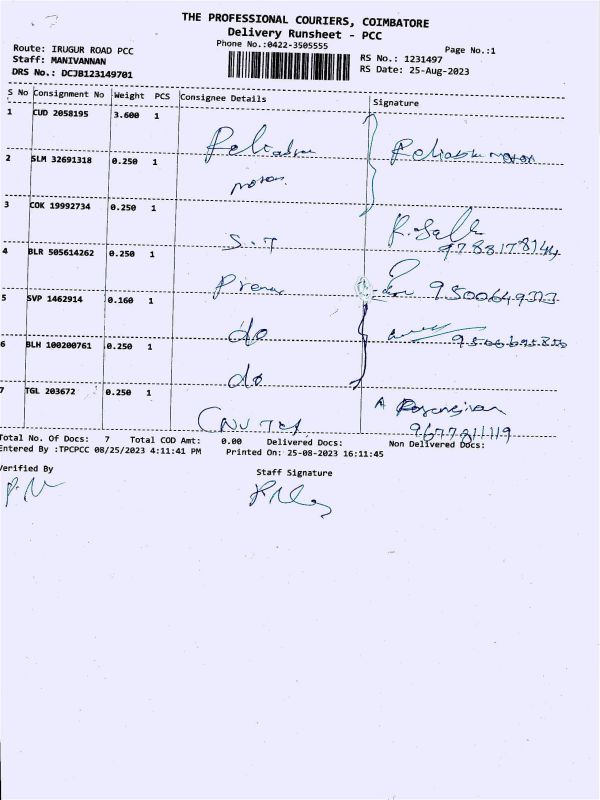 THE PROFESSIONAL COURIERS, COIMBATORE
Delivery Runsheet - PCC
Phone No.:0422-3505555
Page No.:1
Route: IRUGUR ROAD PCC
Staff: MANIVANNAN
DRS No.: DCJB123149701
RS No.: 1231497
RS Date: 25-Aug-2023
S No Consignment No Weight PCS Consignee Details Signature
1 CUD 2058195 3.600 1 Reliable Reliable motors
2 SLM 32691318 0.250 1 motors
3 COK 19992734 0.250 1 S.T
9788178144
4 BLR 505614262 0.250 1 9500649323
5 SVP 1462914 0.160 1 do
6 BLH 100200761 0.250 1 do
7 TGL 203672 0.250 1 A
9677811119
Total No. Of Docs: 7 Total COD Amt: 0.00 Delivered Docs: Non Delivered Docs:
Entered By :TPCPCC 08/25/2023 4:11:41 PM Printed On: 25-08-2023 16:11:45
Verified By Staff Signature